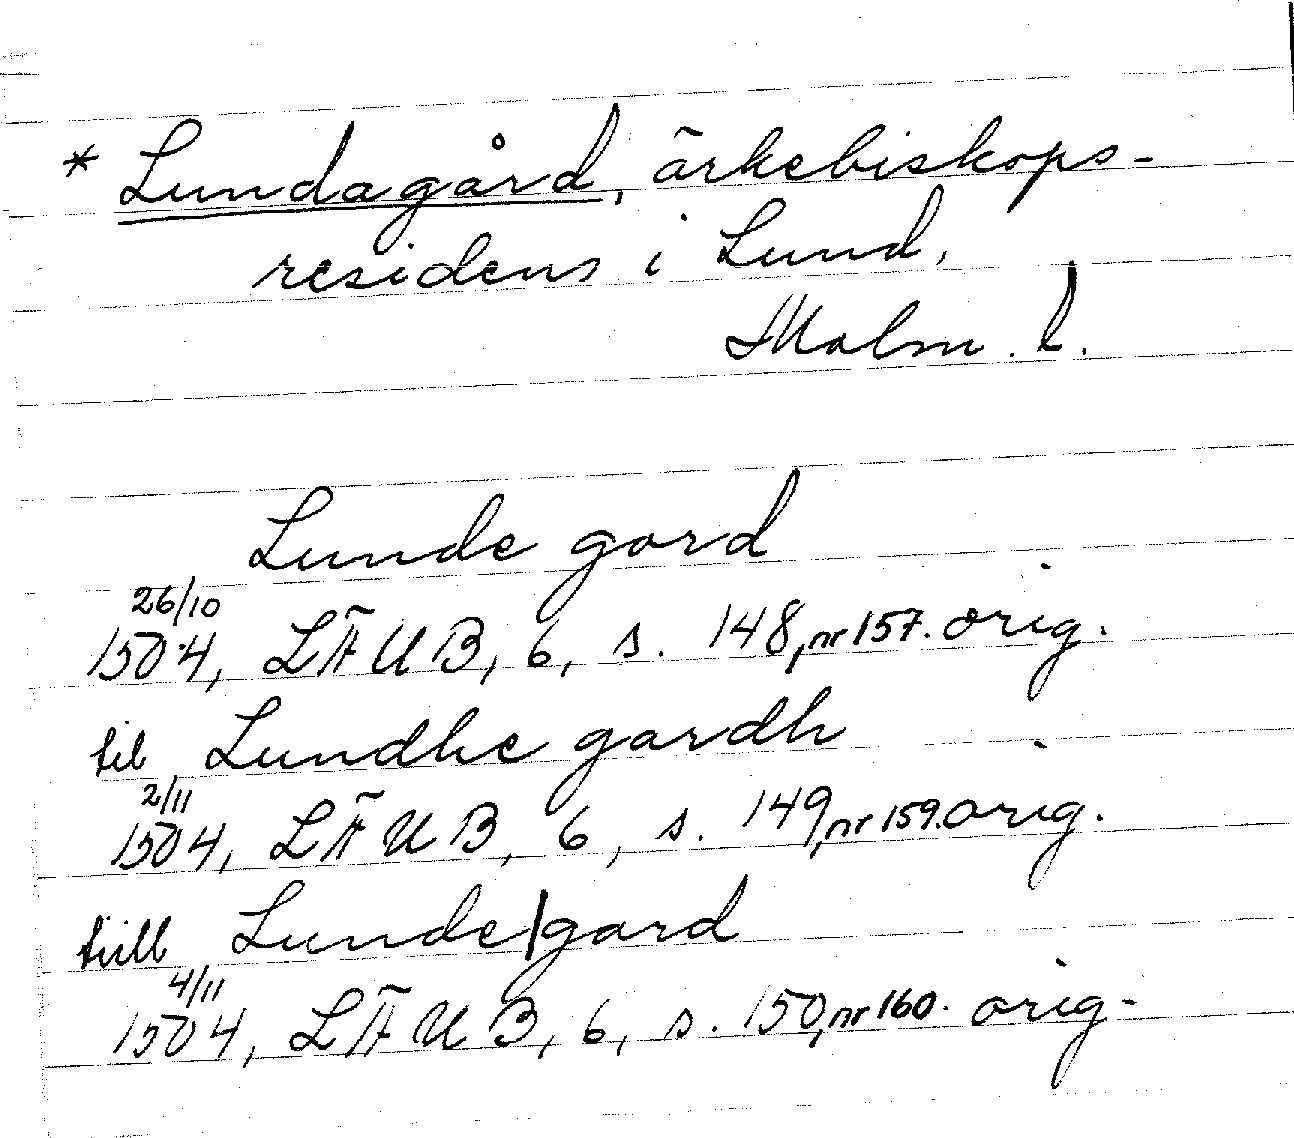 * Lundagård, ärkebiskops-
residens i Lund,
Malm. l.
Lunde gord
26/10
1504, LÄUB, 6, s. 148, nr 157. orig.
til Lundhe gardh
2/11
1504, LÄUB, 6, s. 149, nr 159. orig.
tiill Lunde|gard
4/11
1504, LÄUB, 6, s. 150, nr 160. orig-